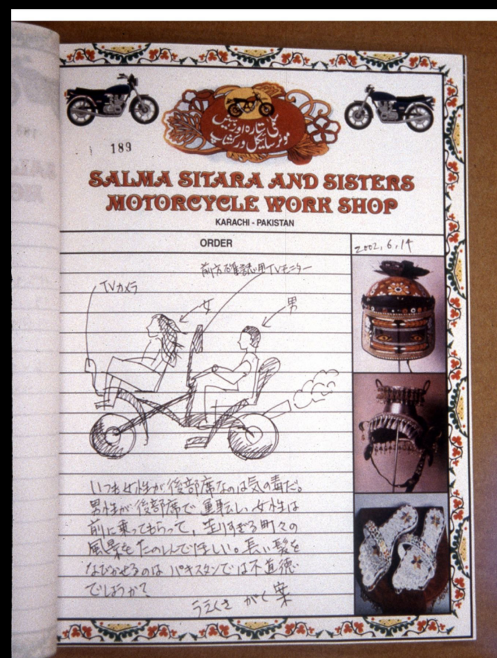 189
SALMA SITARA AND SISTERS
MOTORCYCLE WORK SHOP
KARACHI - PAKISTAN
ORDER
2002.6.14
前方確認用TVモニター
TVカメラ
女
男
いつも女性が後部席なのは気の毒だ。
男性が後部席で運転し、女性は
前に乗ってもらって、走りすぎる町々の
風景をたのしんでほしい。長い髪を
なびかせるのはパキスタンでは不道徳
でしょうか?
がく 案